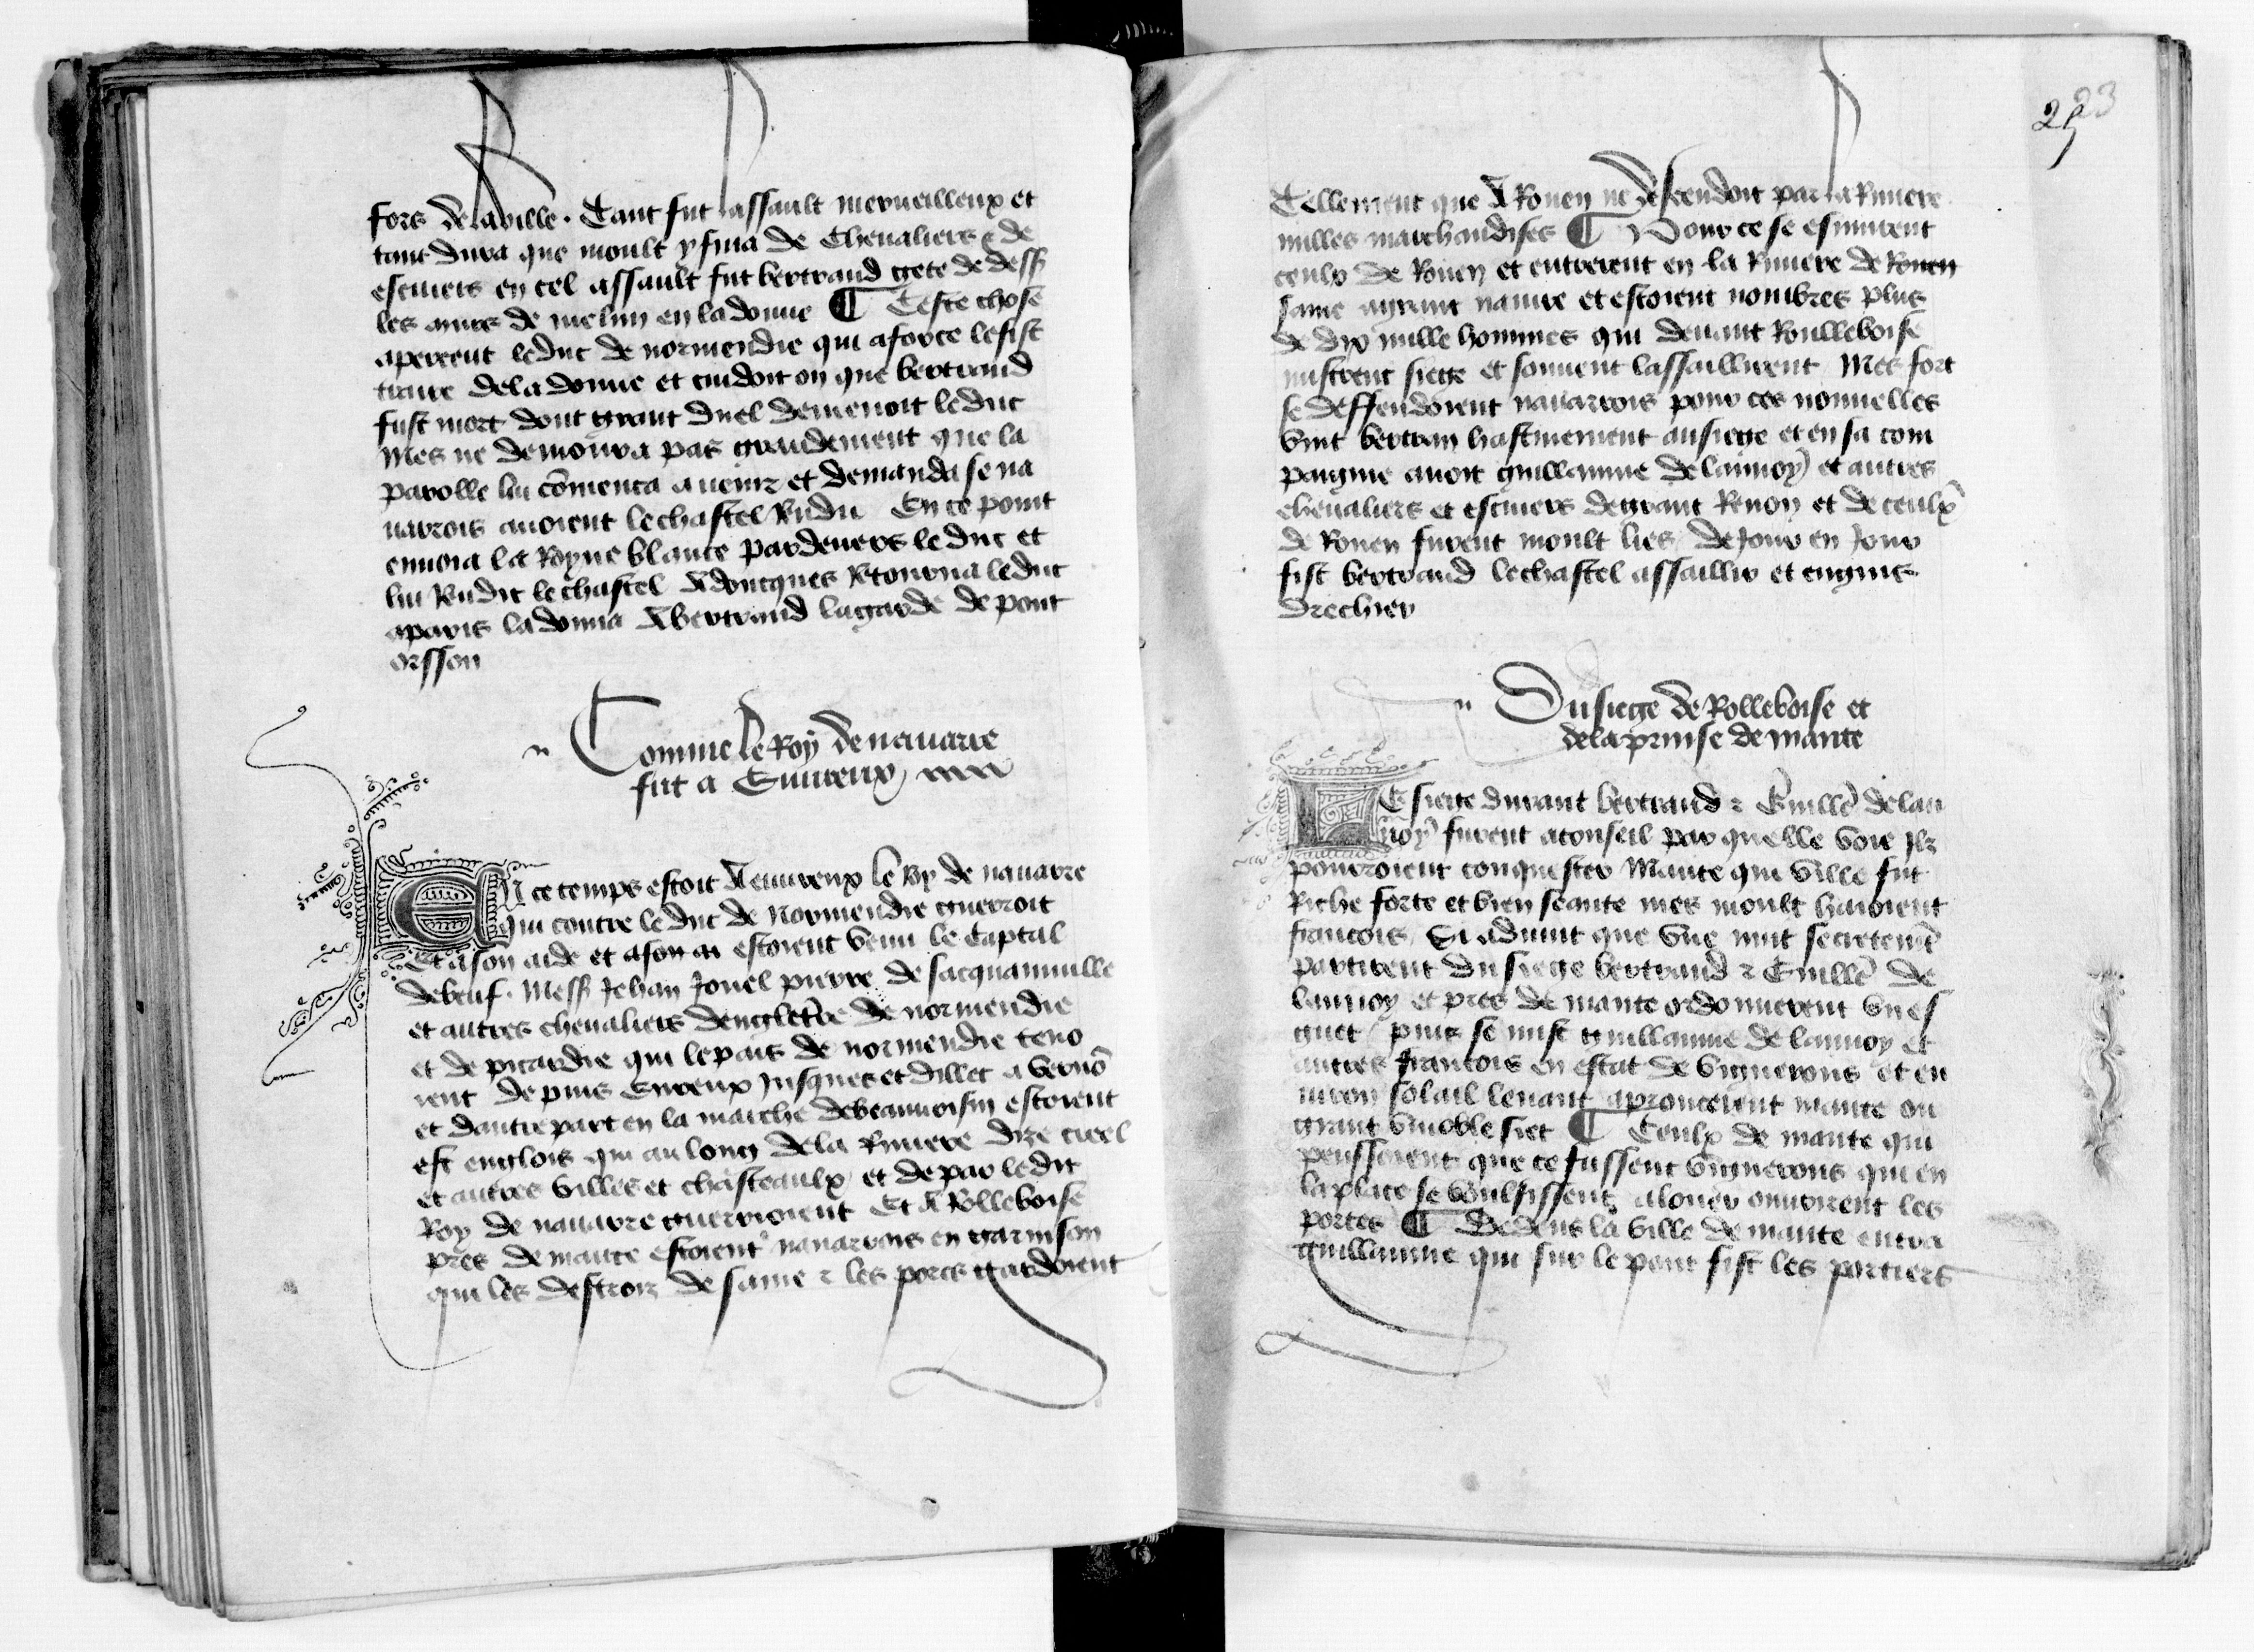 fors de la ville . Tant fut lassault merueilleux et
tant dura que moult y fina de Cheualiers & de
escuiers en cel assault fut bertrand gete de dess9
les murs de melun en la douue ¶ Ceste chose
aperceut le duc de normendie qui a force le fist
traire de la douue et cuidoit on que bertrand
fust mort dont grant duel demenoit le duc
Mes ne demoura pas grandement que la
parolle lui cōmenca a uenir et demanda se na
uarrois auoient le chastel Rendu En ce point
enuoia la Royne blance par deuers le duc et
lui Rendit le chastel Adoncques Retourna le duc
a paris la donna A bertrand la garde de pont
orsson
Comme le Roy de nauarre
fut a Euureux
En ce temps estoit A euureux le Roy de nauarre
qui contre le duc de Normendie guerroit
Et a son aide et a son estoient venu le Captal
de beuf . Mess9 Jehan Jouel pierre de sacquainuille
et autres cheualiers dengletrre de normendie
et de picardie qui le pais de normendie teno
ient de puis Eureux Jusques et dillec a vernō
et dautre part en la marche de beauuoisin estoient
est englois qui au long de la Riuiere dize creel
et autres villes et chasteaulx et de par le dit
Roy de nauarre guerrioient Et A Rolleboise
pres de mante estoient nauarrois en garnison
qui les destroiz de saine & les pors gardoient
23
Tellement que A Rouen ne descendoit par la Riuiere
nulles marchandises ¶ Pour ce se esmurent
ceulx de Rouen et entrerent en la Riuiere de Rouen
saine a grant nauire et estoient nombres plus
de dix mille hommes qui deuant Roulleboise
mistrent siege et souuent lassaillirent Mes fort
se deffendoient nauarrois pour ces nouuelles
vint bertran hastiuement au siege et en sa com
paignie auoit guillaume de lannoy et autres
cheualiers et escuiers de grant Renon et de ceulx
de Rouen furent moult lies de Jour en Jour
fist bertrand le chastel assaillir et engins
drechier
Du siege de Rolleboise et
de la prinse de mante
Le siege durant bertrand & Guillē de lan
noy furent a conseil par quelle voie Ilz
pourroient conquester Mante qui ville fut
Riche forte et bien seante mes moult haioient
francois Si aduint que vne nuit secretemēt
partirent du siege bertrand & Guillē de
lannoy et pres de mante ordonnerent vn es
guet / puis se mist guillaume de lannoy et
autres francois en estat de vignerons et en
uiron solail leuant aproucerent mante ou
grant vinoble siet ¶ Ceulx de mante qui
penssoient que ce fussent vignerons qui en
la place se voulsissent alouer ouurirent les
portes ¶ Dedens la ville de mante entra
guillaume qui sur le pont fist les portiers